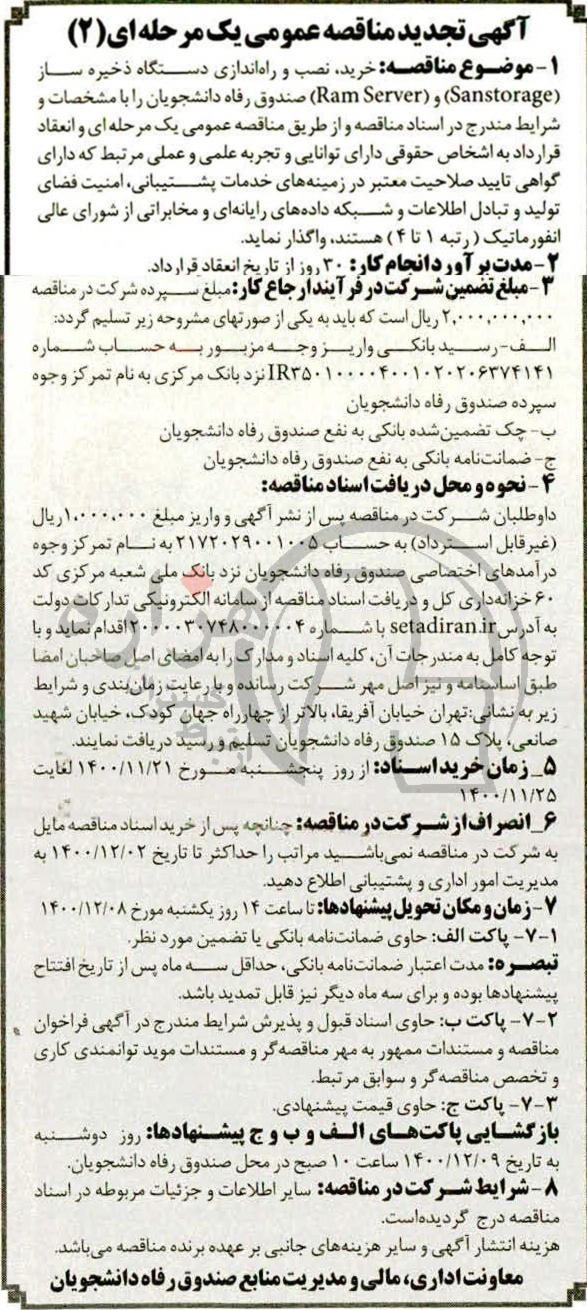 آگهی تجدید مناقصه عمومی یک مرحله‌ای (۲)
۱- موضوع مناقصه: خرید، نصب و راه‌اندازی دستگاه ذخیره ساز
(Sanstorage) و (Ram Server) صندوق رفاه دانشجویان را با مشخصات و
شرایط مندرج در اسناد مناقصه و از طریق مناقصه عمومی یک مرحله ای و انعقاد
قرارداد به اشخاص حقوقی دارای توانایی و تجربه علمی و عملی مرتبط که دارای
گواهی تایید صلاحیت معتبر در زمینه‌های خدمات پشتیبانی، امنیت فضای
تولید و تبادل اطلاعات و شبکه داده‌های رایانه‌ای و مخابراتی از شورای عالی
انفورماتیک (رتبه ۱ تا ۴) هستند، واگذار نماید.
۲- مدت برآورد انجام کار: ۳۰ روز از تاریخ انعقاد قرارداد.
۳- مبلغ تضمین شرکت در فرآیند ارجاع کار: مبلغ سپرده شرکت در مناقصه
۲,۰۰۰,۰۰۰,۰۰۰ ریال است که باید به یکی از صورتهای مشروحه زیر تسلیم گردد:
الف- رسید بانکی واریز وجه مزبور به حساب شماره
IR۳۵۰۱۰۰۰۰۴۰۰۱۰۲۰۲۰۶۳۷۴۱۴۱ نزد بانک مرکزی به نام تمرکز وجوه
سپرده صندوق رفاه دانشجویان
ب- چک تضمین‌شده بانکی به نفع صندوق رفاه دانشجویان
ج- ضمانت‌نامه بانکی به نفع صندوق رفاه دانشجویان
۴- نحوه و محل دریافت اسناد مناقصه:
داوطلبان شرکت در مناقصه پس از نشر آگهی و واریز مبلغ ۱،۰۰۰،۰۰۰ ریال
(غیرقابل استرداد) به حساب ۲۱۷۲۰۲۹۰۰۱۰۰۵ به نام تمرکز وجوه
درآمدهای اختصاصی صندوق رفاه دانشجویان نزد بانک ملی شعبه مرکزی کد
۶۰ خزانه‌داری کل و دریافت اسناد مناقصه از سامانه الکترونیکی تدارکات دولت
به آدرس setadiran.ir با شماره ۲۰۰۰۰۳۰۷۴۸۰۰۰۰۰۴ اقدام نماید و با
توجه کامل به مندرجات آن، کلیه اسناد و مدارک را به امضای اصل صاحبان امضا
طبق اساسنامه و نیز اصل مهر شرکت رسانده و با رعایت زمان‌بندی و شرایط
زیر به نشانی: تهران خیابان آفریقا، بالاتر از چهارراه جهان کودک، خیابان شهید
صانعی، پلاک ۱۵ صندوق رفاه دانشجویان تسلیم و رسید دریافت نمایند.
۵_ زمان خرید اسناد: از روز پنجشنبه مورخ ۱۴۰۰/۱۱/۲۱ لغایت
۱۴۰۰/۱۱/۲۵
۶_ انصراف از شرکت در مناقصه: چنانچه پس از خرید اسناد مناقصه مایل
به شرکت در مناقصه نمی‌باشید مراتب را حداکثر تا تاریخ ۱۴۰۰/۱۲/۰۲ به
مدیریت امور اداری و پشتیبانی اطلاع دهید.
۷- زمان و مکان تحویل پیشنهادها: تا ساعت ۱۴ روز یکشنبه مورخ ۱۴۰۰/۱۲/۰۸
۷-۱- پاکت الف: حاوی ضمانت‌نامه بانکی یا تضمین مورد نظر.
تبصره: مدت اعتبار ضمانت‌نامه بانکی، حداقل سه ماه پس از تاریخ افتتاح
پیشنهادها بوده و برای سه ماه دیگر نیز قابل تمدید باشد.
۷-۲- پاکت ب: حاوی اسناد قبول و پذیرش شرایط مندرج در آگهی فراخوان
مناقصه و مستندات ممهور به مهر مناقصه‌گر و مستندات موید توانمندی کاری
و تخصص مناقصه‌گر و سوابق مرتبط.
۷-۳- پاکت ج: حاوی قیمت پیشنهادی.
بازگشایی پاکت‌های الف و ب و ج پیشنهادها: روز دوشنبه
به تاریخ ۱۴۰۰/۱۲/۰۹ ساعت ۱۰ صبح در محل صندوق رفاه دانشجویان.
۸- شرایط شرکت در مناقصه: سایر اطلاعات و جزئیات مربوطه در اسناد
مناقصه درج گردیده‌است.
هزینه انتشار آگهی و سایر هزینه‌های جانبی بر عهده برنده مناقصه می‌باشد.
معاونت اداری، مالی و مدیریت منابع صندوق رفاه دانشجویان